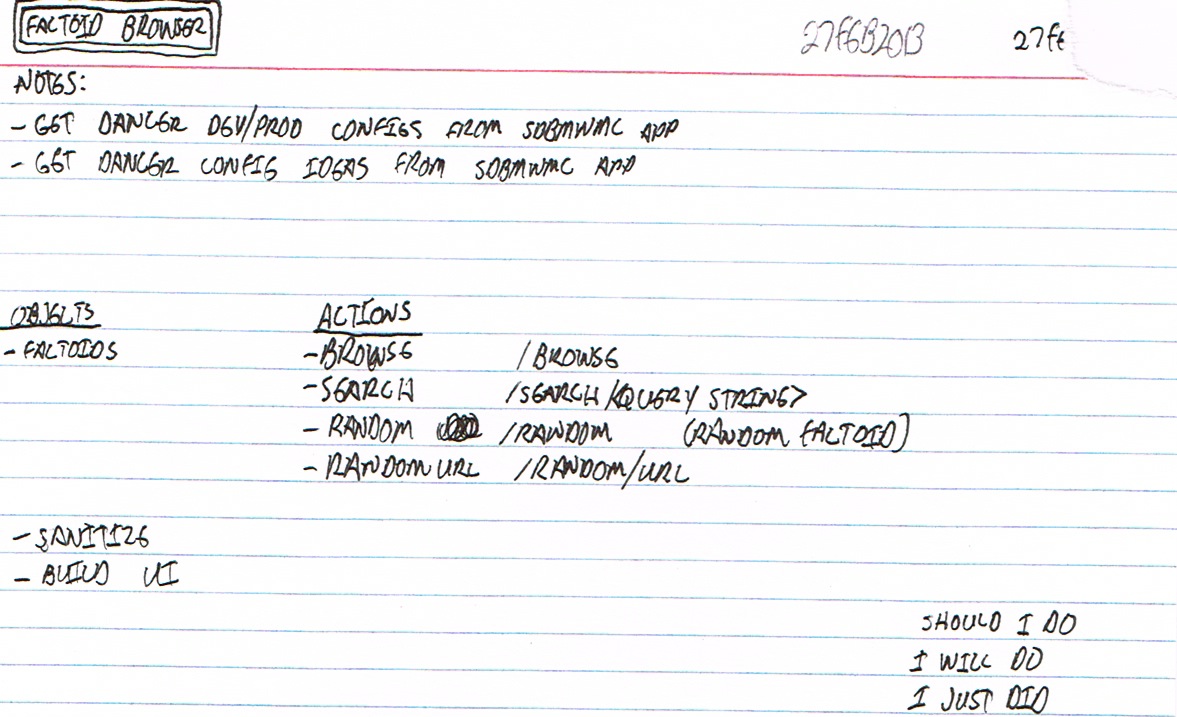 FACTOID BROWSER
27FEB2013 27FE
NOTES:
- GET DANCER DEV/PROD CONFIGS FROM APP
- GET DANCER CONFIG IDEAS FROM APP
OBJECTS ACTIONS
- FACTOIDS - BROWSE /BROWSE
- SEARCH /SEARCH/<QUERY STRING>
- RANDOM /RANDOM (RANDOM FACTOID)
- RANDOM URL /RANDOM/URL
- SANITIZE
- BUILD UI
SHOULD I DO
I WILL DO
I JUST DID